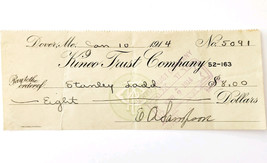 Dover, Me. Jan 10 1914 No. 5091
Kineo Trust Company 52-163
Pay to the order of Stanley Ladd $8.00
Eight Dollars